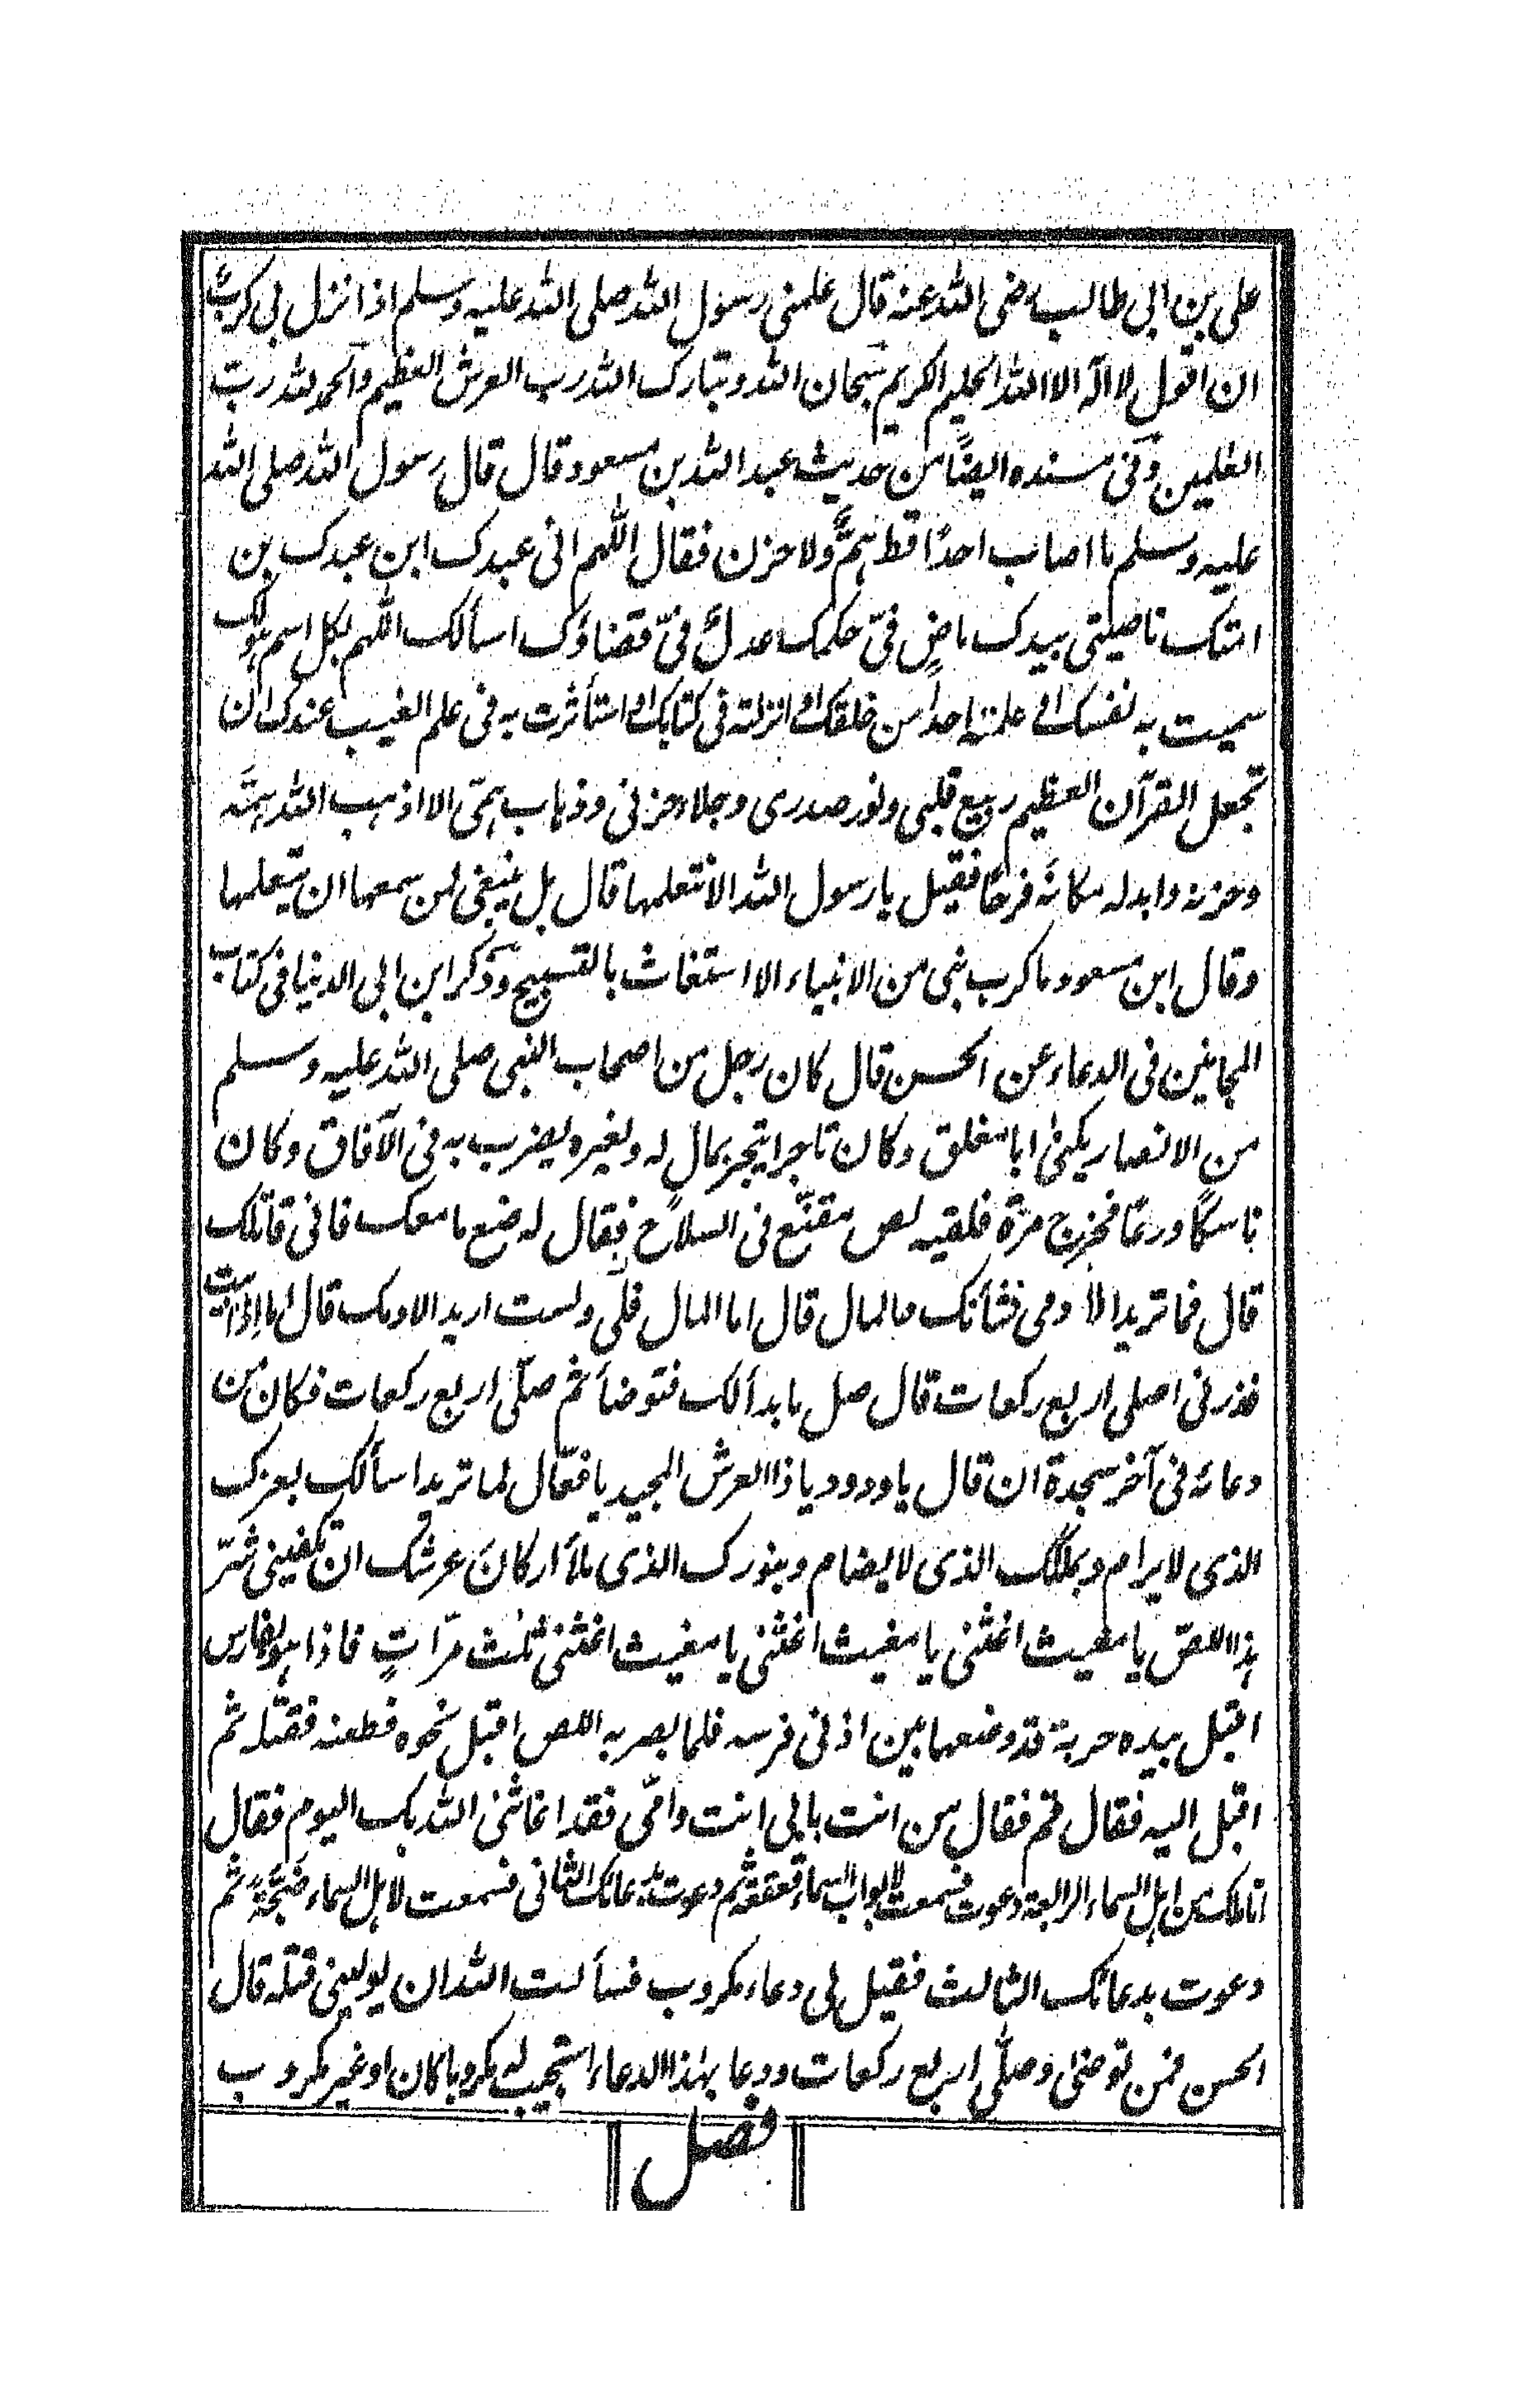 علی بن ابی طالب رضی الله عنہ قال علمنی رسول الله صلی الله علیہ وسلم اذا نزل بی کربٌ
ان اقول لا الٰہ الا الله الحلیم الکریم سبحان الله وتبارک الله رب العرش العظیم والحمد لله رب
العٰلمین وفی مسندہ ایضًا من حدیث عبد الله بن مسعود قال قال رسول الله صلی الله
علیہ وسلم ما اصاب احدًا قط ہمٌّ ولا حزن فقال اللّٰهم انی عبدک ابن عبدک بن
امتک ناصیتی بیدک ماضٍ فیّ حکمک عدلٌ فیّ قضاؤک اسألک اللّٰهم بکل اسم ہو لک
سمیت بہ نفسک او علمتہ احدًا من خلقک او انزلتہ فی کتابک او استأثرت بہ فی علم الغیب عندک ان
تجعل القرآن العظیم ربیع قلبی ونور صدری وجلاء حزنی وذہاب ہمّی الا اذہب الله ہمّہ
وحزنہ وابدلہ مکانہ فرحًا فقیل یا رسول الله الا نتعلمها قال بل ینبغی لمن سمعها ان یتعلمها
وقال ابن مسعود ما کرب نبی من الانبیاء الا استغاث بالتسبیح وذکر ابن ابی الدنیا فی کتاب
المجانین فی الدعاء عن الحسن قال کان رجل من اصحاب النبی صلی الله علیہ وسلم
من الانصار یکنیٰ ابا مغلق وکان تاجرا یتجر بمال لہ ولغیرہ یضرب بہ فی الآفاق وکان
ناسکًا ورعًا فخرج مرۃ فلقیہ لص مقنّع فی السلاح فقال لہ ضع ما معک فانی قاتلک
قال فما ترید الا دمی فشأنک بالمال قال اما المال فلی ولست ارید الا دمک قال اما اذا ابیت
فذرنی اصلی اربع رکعات قال صل ما بدأ لک فتوضأ ثم صلّی اربع رکعات فکان من
دعائہ فی آخر سجدۃ ان قال یا ودود یا ذا العرش المجید یا فعّال لما ترید اسألک بعزک
الذی لا یرام وبملکک الذی لا یضام وبنورک الذی ملأ ارکان عرشک ان تکفینی شرّ
ہذا اللصّ یا مغیث اغثنی یا مغیث اغثنی یا مغیث اغثنی ثلٰث مرّاتٍ فاذا ہو بفارس
اقبل بیدہ حربۃ قد وضعها بین اذنی فرسہ فلما بصر بہ اللص اقبل نحوہ فطعنہ فقتلہ ثم
اقبل الیہ فقال قم فقال من انت بابی انت وامّی فقد اغاثنی الله بک الیوم فقال
انا ملک من اہل السماء الرابعۃ دعوت فسمعت لابواب السماء قعقعۃ ثم دعوت بدعائک الثانی فسمعت لاہل السماء ضجّۃً ثم
دعوت بدعائک الثالث فقیل لی دعاء مکروب فسألت الله ان یولینی قتلہ قال
الحسن فمن توضئ وصلّی اربع رکعات ودعا بہذا الدعاء استجیب لہ مکروبا کان او غیر مکروب
فصل